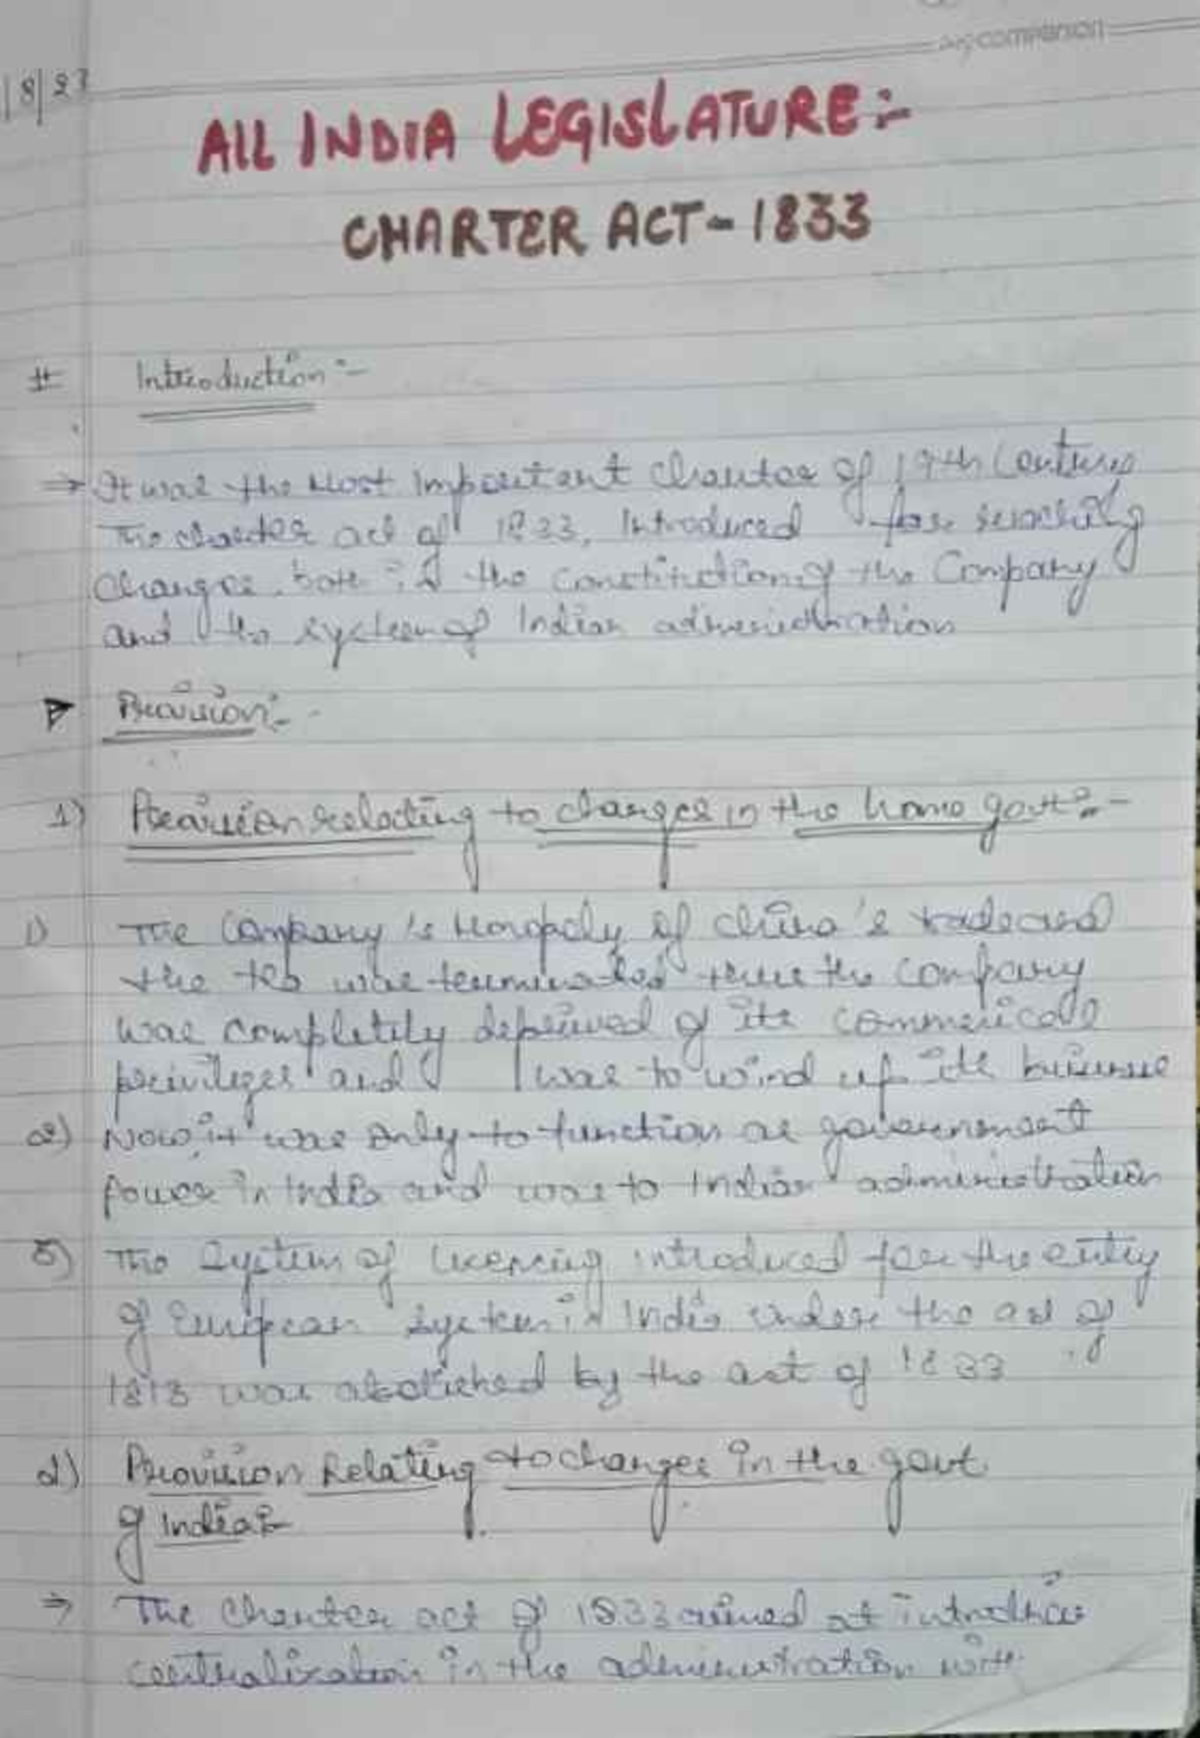 companion
8
ALL INDIA LEGISLATURE:-
CHARTER ACT-1833
# Introduction:-
→ It was the Most Important Charter of 19th Century
The charter act of 1833, Introduced far reaching
changes both in the constitution of the Company
and the system of Indian administration
Provision:-
1) Provision relating to changes in the home govt:-
1) The Company's Monopoly of china's trade and
the tea was terminated thus the company
was completely deprived of its commerical
privileges and was to wind up its business
2) Now, it was only to function as government
power in India and was to Indian administration
3) The System of licencing introduced for the entry
of European system in India under the act of
1813 was abolished by the act of 1833
2) Provision Relating to changes in the govt
of India:-
⇒ The Charter act of 1833 aimed at introduce
centralization in the administration with